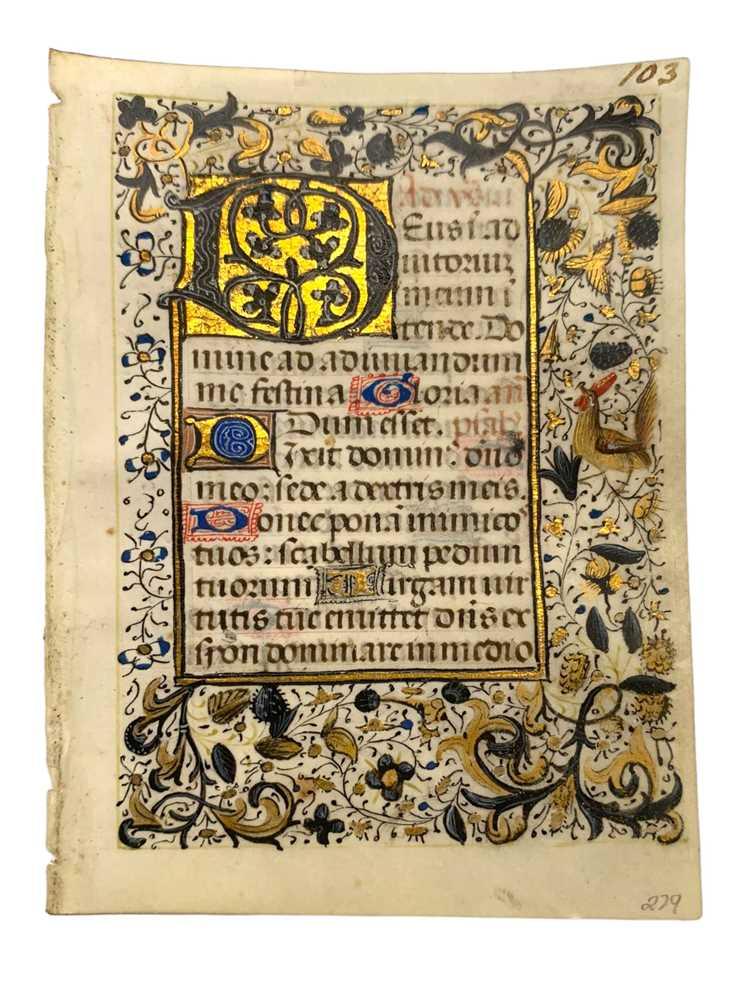 103
Ad vesp̄
Deus ī ad
iutoriuȝ
meum ī
tende. Do
mine ad adiuuandum
me festina Gloria an̄
Dum esset. psal̄
Dixit domin⁹ dn̄o
meo: sede a dextris meis.
Donec ponā inimico
tuos: scabellum pedum
tuorum Virgam uir
tutis tue emittet dn̄s ex
syon dominare in medio
229